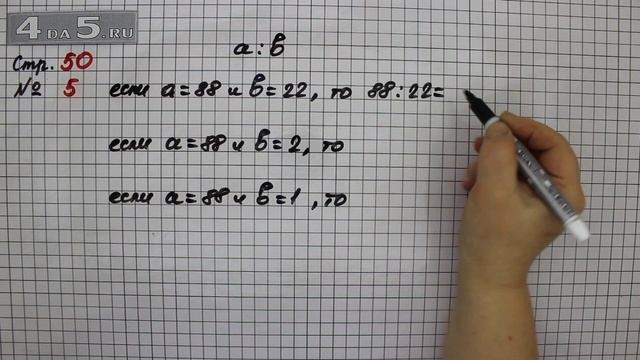 4 DA 5.RU
a : b
Стр. 50
№ 5 если a = 88 и b = 22, то 88 : 22 =
если a = 88 и b = 2, то
если a = 88 и b = 1, то